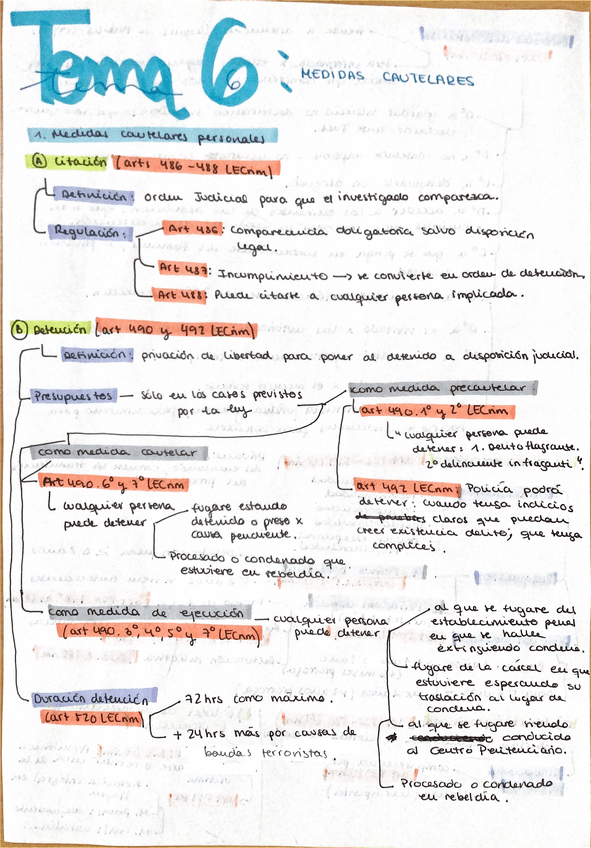 Tema 6:
MEDIDAS CAUTELARES
1. Medidas cautelares personales
A Citación (arts 486-488 LECrim)
Definición: orden Judicial para que el investigado comparezca.
Regulación:
Art 486: Comparecencia obligatoria salvo disposición
legal.
Art 487: Incumplimiento → se convierte en orden de detención.
Art 488: Puede citarse a cualquier persona implicada.
B Detención (art 490 y 492 LECrim)
Definición: privación de libertad para poner al detenido a disposición judicial.
Presupuestos — sólo en los casos previstos
por la ley
como medida precautelar
art 490.1º y 2º LECrim
"cualquier persona puede
detener: 1. Delito flagrante.
2º delincuente in fraganti".
art 492 LECrim: Policía podrá
detener: cuando tenga indicios
claros que puedan
creer existencia delito; que tenga
complices.
como medida cautelar
Art 490.6º y 7º LECrim
cualquier persona
puede detener
fugare estando
detenido o preso x
causa pendiente.
Procesado o condenado que
estuviere en rebeldía.
como medida de ejecución
(art 490.3º, 4º, 5º y 7º LECrim)
cualquier persona
puede detener
al que se fugare del
establecimiento penal
en que se halle
extinguiendo condena.
fugare de la cárcel en que
estuviere esperando su
traslación al lugar de
condena.
al que se fugare siendo
conducido
al Centro Penitenciario.
Procesado o condenado
en rebeldía.
Duración detención
(art 520 LECrim)
72 hrs como máximo.
+ 24 hrs más por causas de
bandas terroristas.